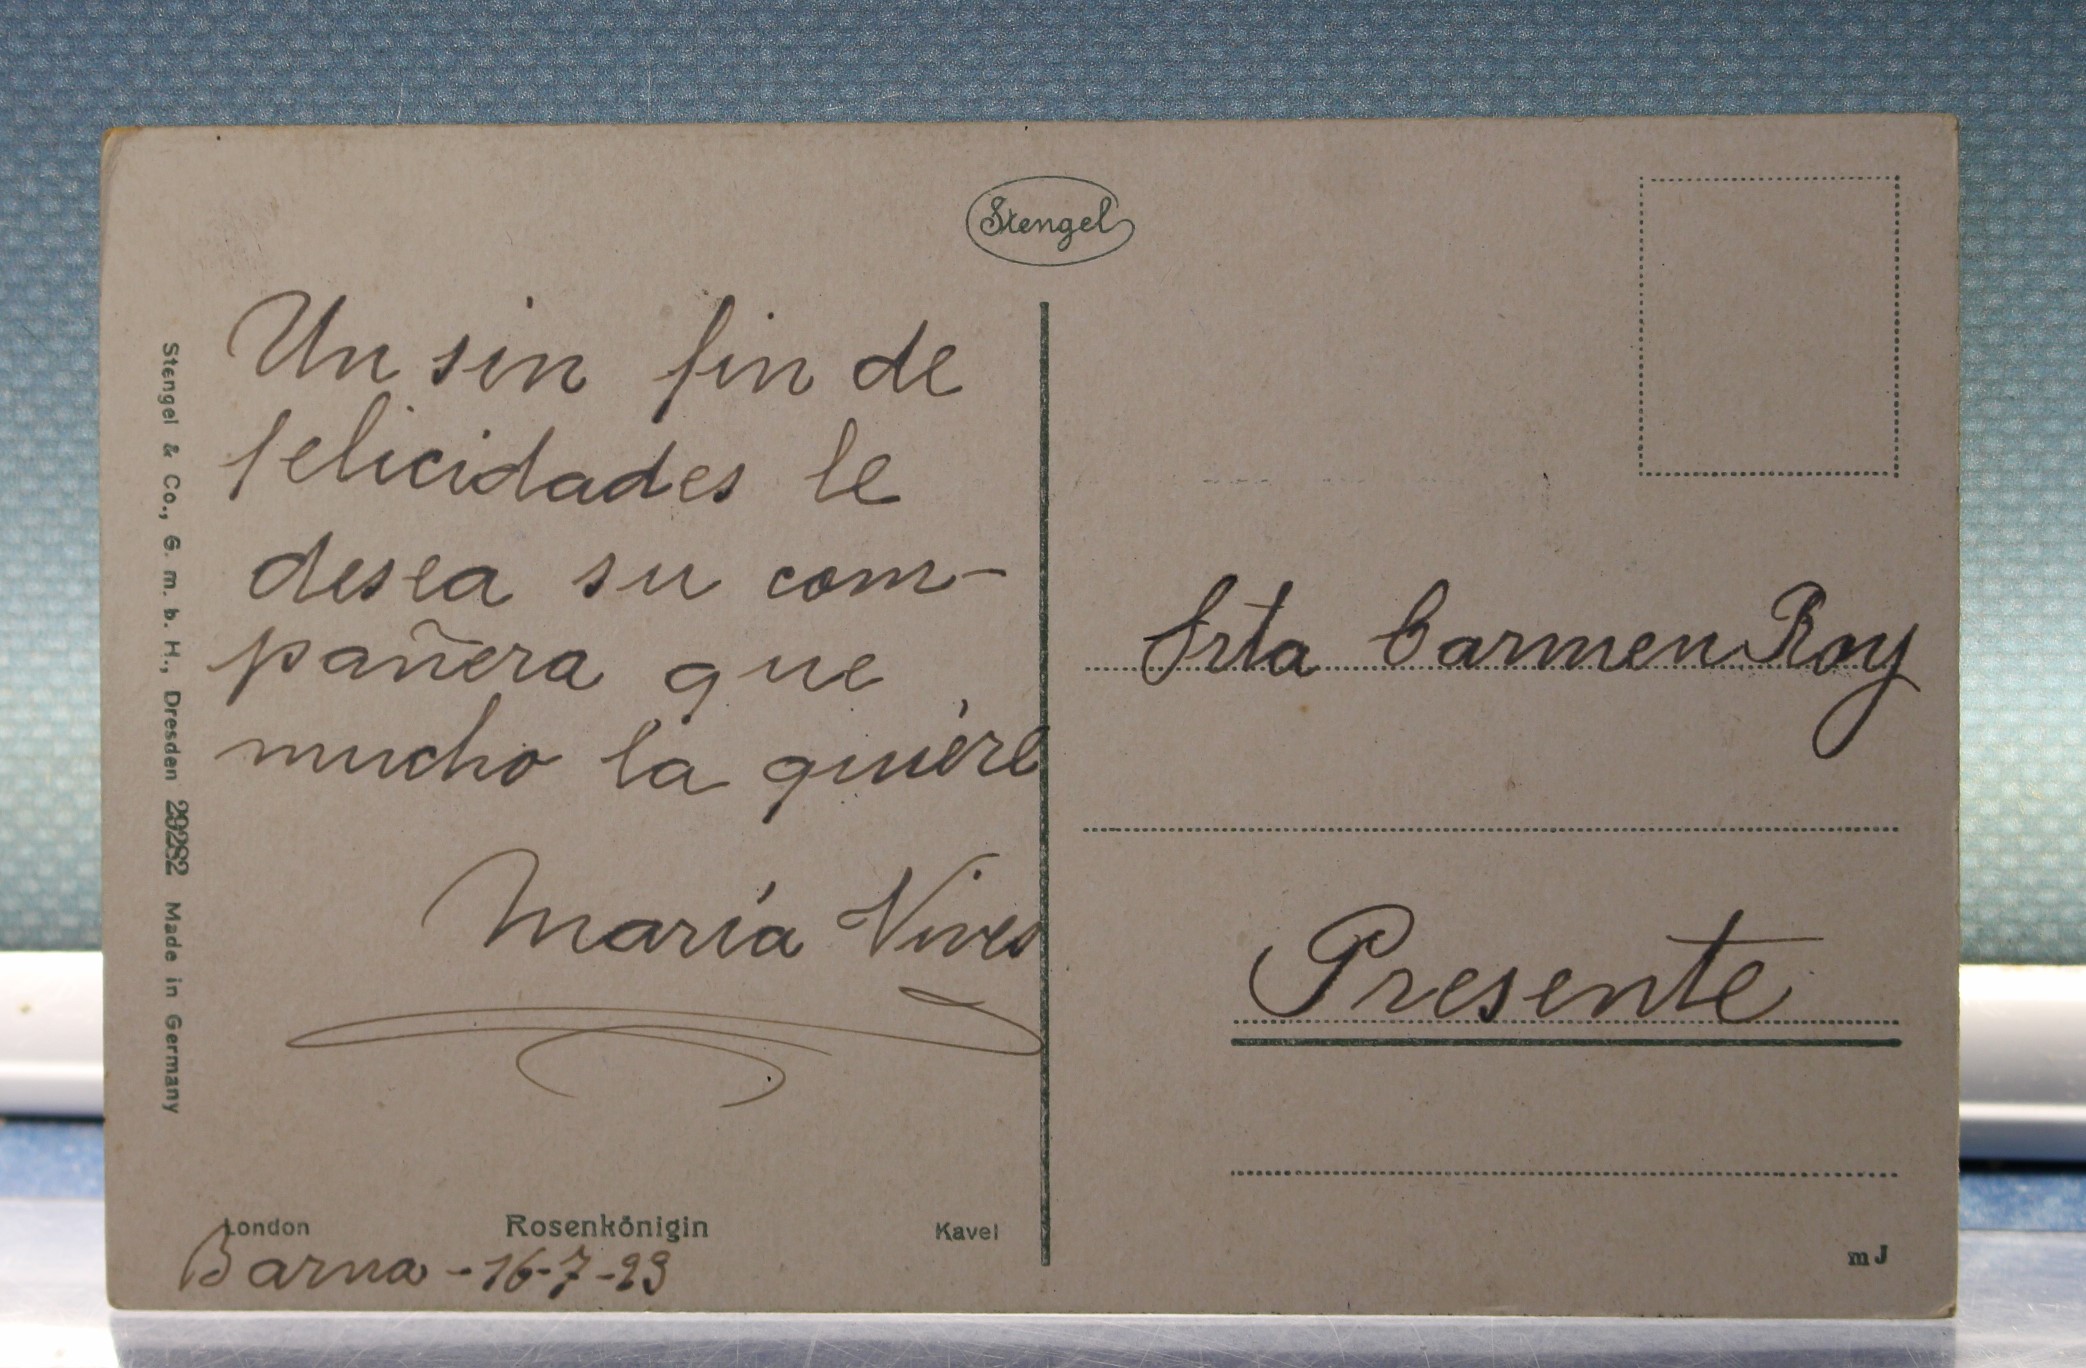 Stengel
Un sin fin de
felicidades le
desea su com-
pañera que
mucho la quiere
María Vives
Srta Carmen Roy
Presente
Stengel & Co., G. m. b. H., Dresden 29282 Made in Germany
London Rosenkönigin Kavel
Barna - 16-7-23
m J